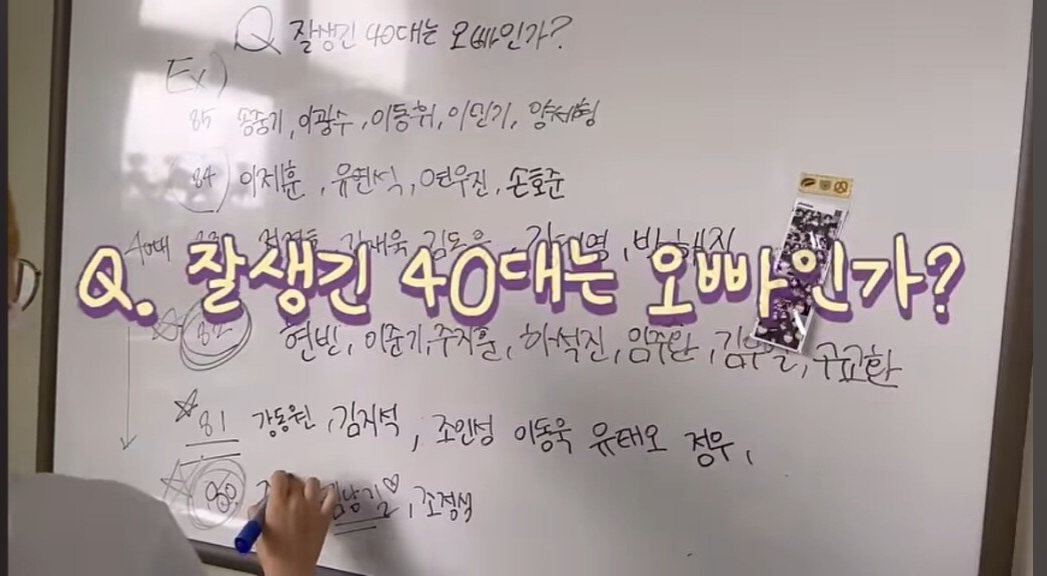 Q 잘생긴 40대는 오빠인가?
Ex)
85 송중기, 이광수, 이동휘, 이민기, 양세형
84 이제훈, 유연석, 연우진, 손호준
40대
Q. 잘생긴 40대는 오빠인가?
82 현빈, 이준기, 주지훈, 하석진, 임주환, 구교환
81 강동원, 김지석, 조인성 이동욱 유태오 정우,
80 김남길♡, 조정석